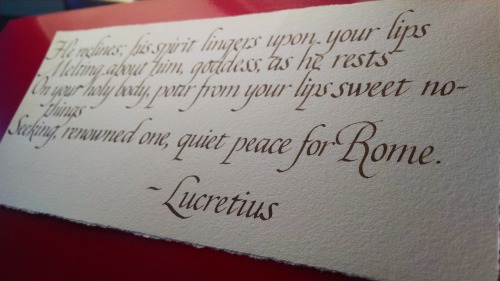 He reclines; his spirit lingers upon your lips
Melting about him, goddess, as he rests
On your holy body, pour from your lips sweet no-
things
Seeking, renowned one, quiet peace for Rome.
~Lucretius